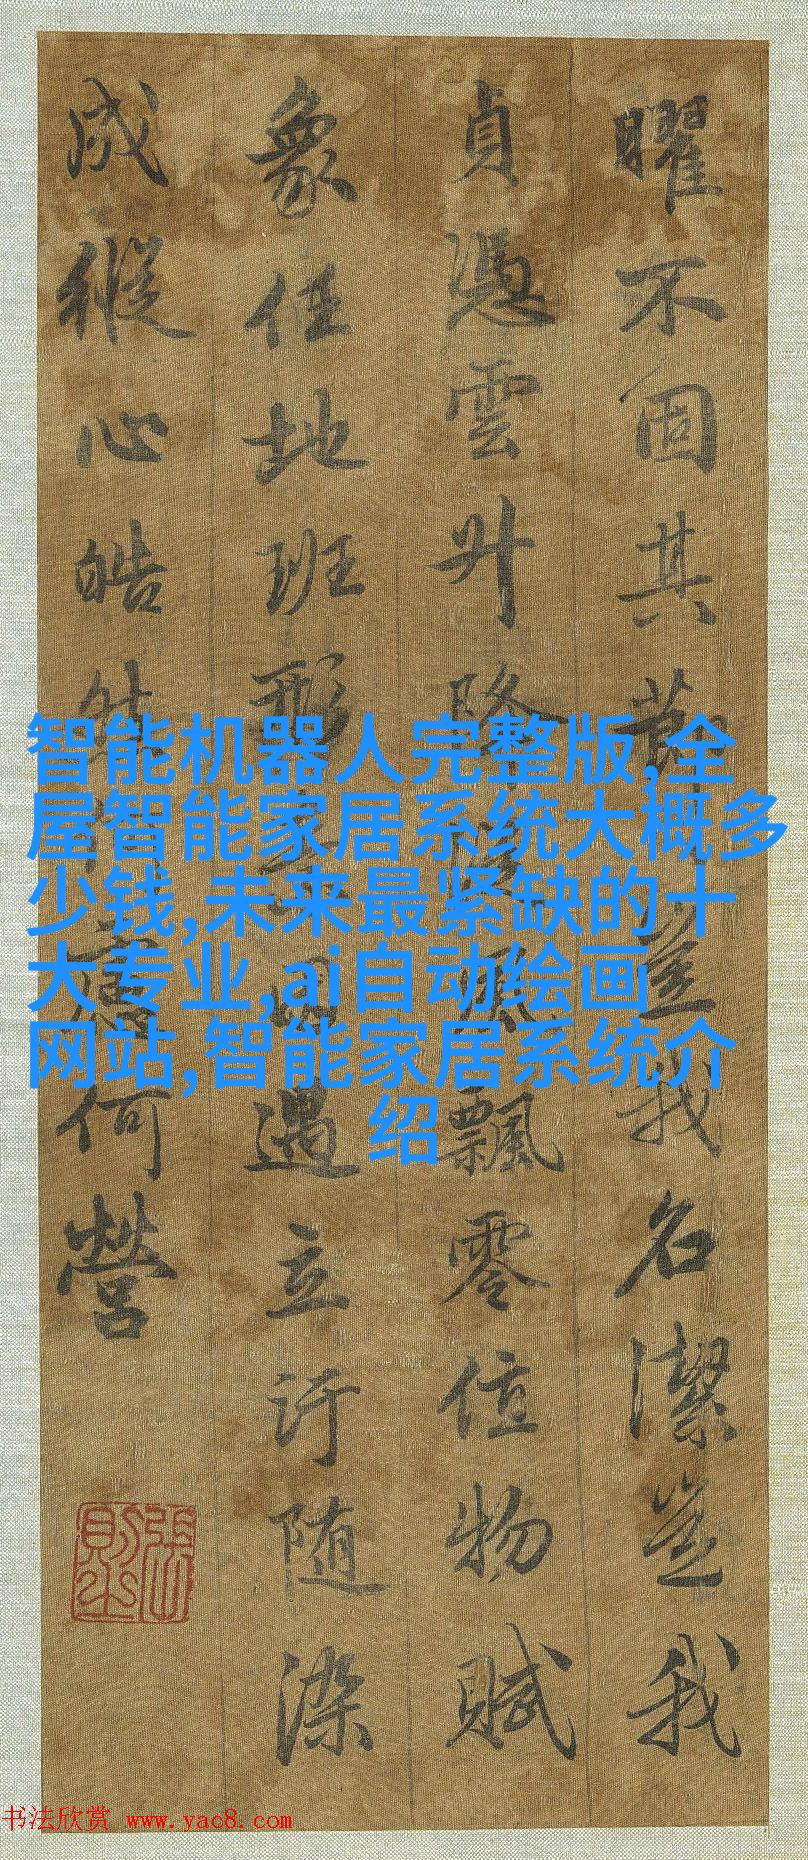 曜不固其節豈我名潔豈我
貞憑雲升降從風飄零值物賦
象任地班形素因遇立汙随染
成縱心皓然何慮何營
張則之
智能机器人完整版,全
屋智能家居系统大概多
少钱,未来最紧缺的十
大专业,ai自动绘画
网站,智能家居系统介
绍
书法欣赏 www.yac8.com